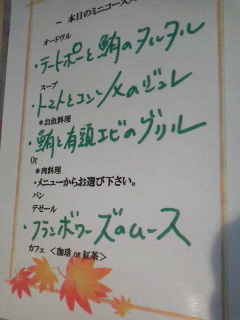 ～ 本日のミニコース
オードヴル
・テートポーと鮪のタルタル
スープ
・トマトとコンソメのジュレ
＊お魚料理
・鮪と有頭エビのグリル
Or
＊肉料理
・メニューからお選び下さい。
パン
デゼール
・フランボワーズのムース
カフェ <珈琲 or 紅茶>